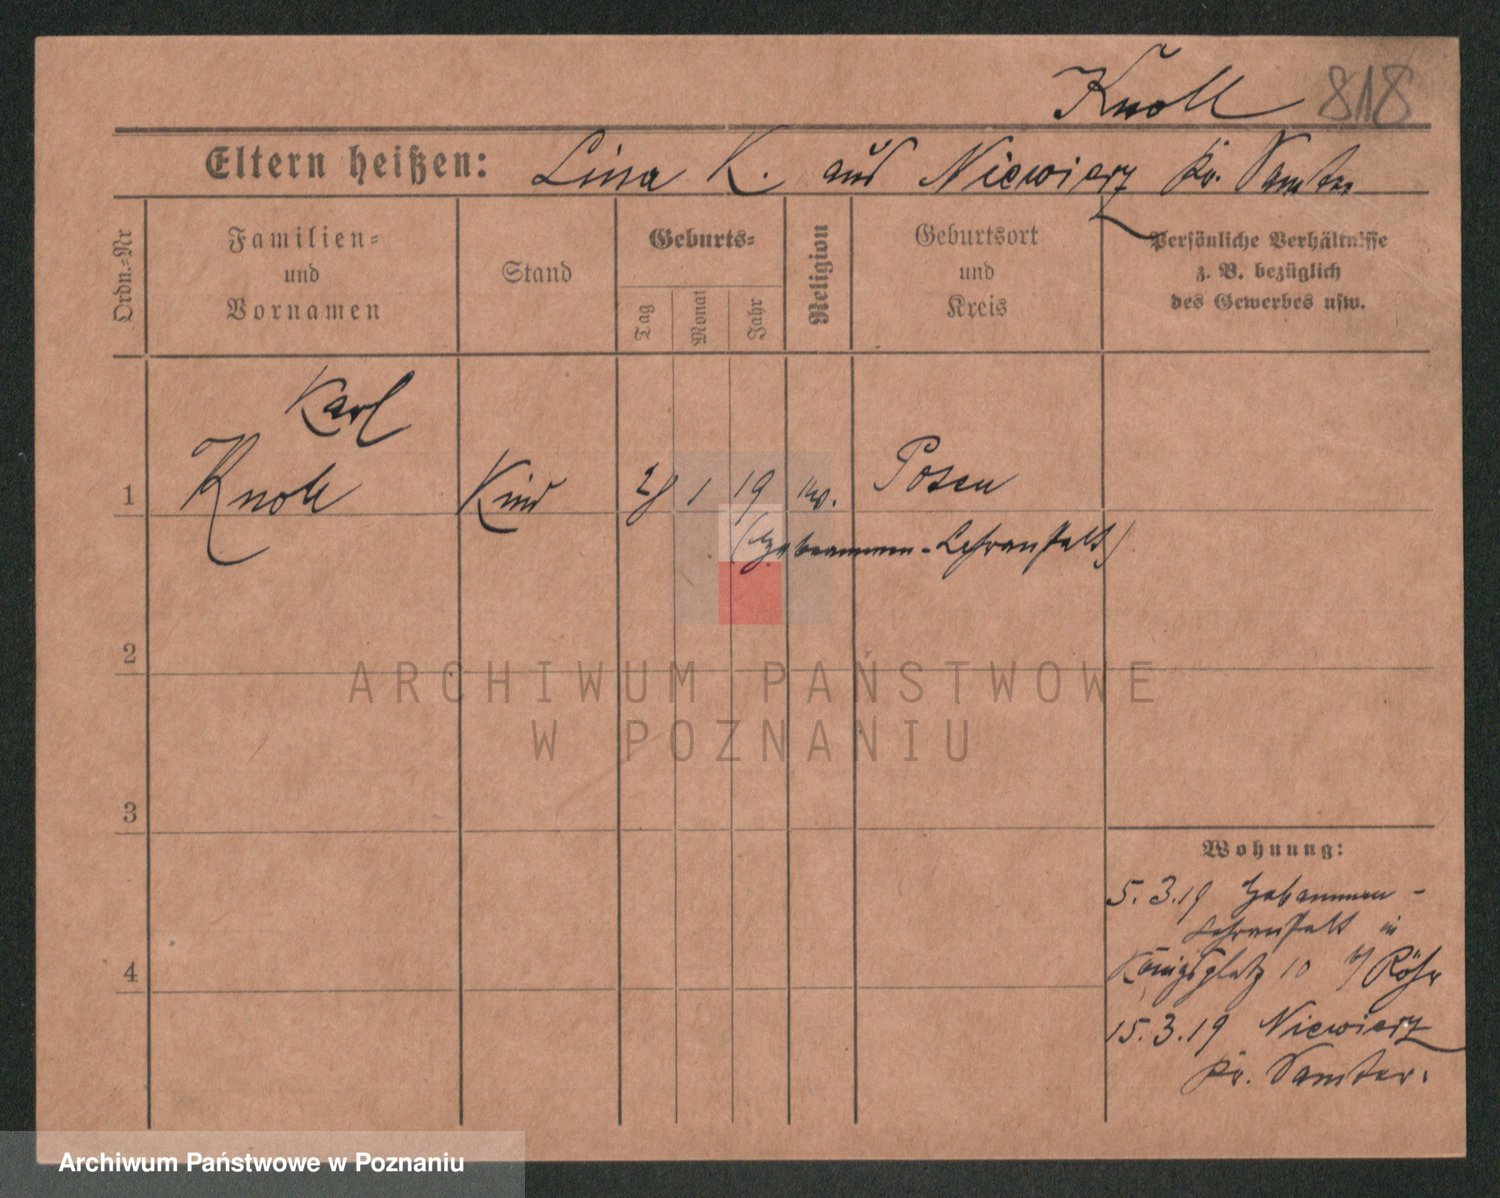 Knoll 818
Eltern heißen: Lina K. aus Niewierz Kr. Samter
Ordn.-Nr
Familien-
und
Vornamen
Stand
Geburts-
Tag
Monat
Jahr
Religion
Geburtsort
und
Kreis
Persönliche Verhältnisse
z. B. bezüglich
des Gewerbes usw.
Karl
1 Knoll Kind 28 1 19 ev. Posen
(Hebammen-Lehranstalt)
2
3
4
Wohnung:
5.3.19 Hebammen-
Lehranstalt in
Königsplatz 10 b/ Röhr
15.3.19 Niewierz
Kr. Samter.
ARCHIWUM PAŃSTWOWE
W POZNANIU
Archiwum Państwowe w Poznaniu